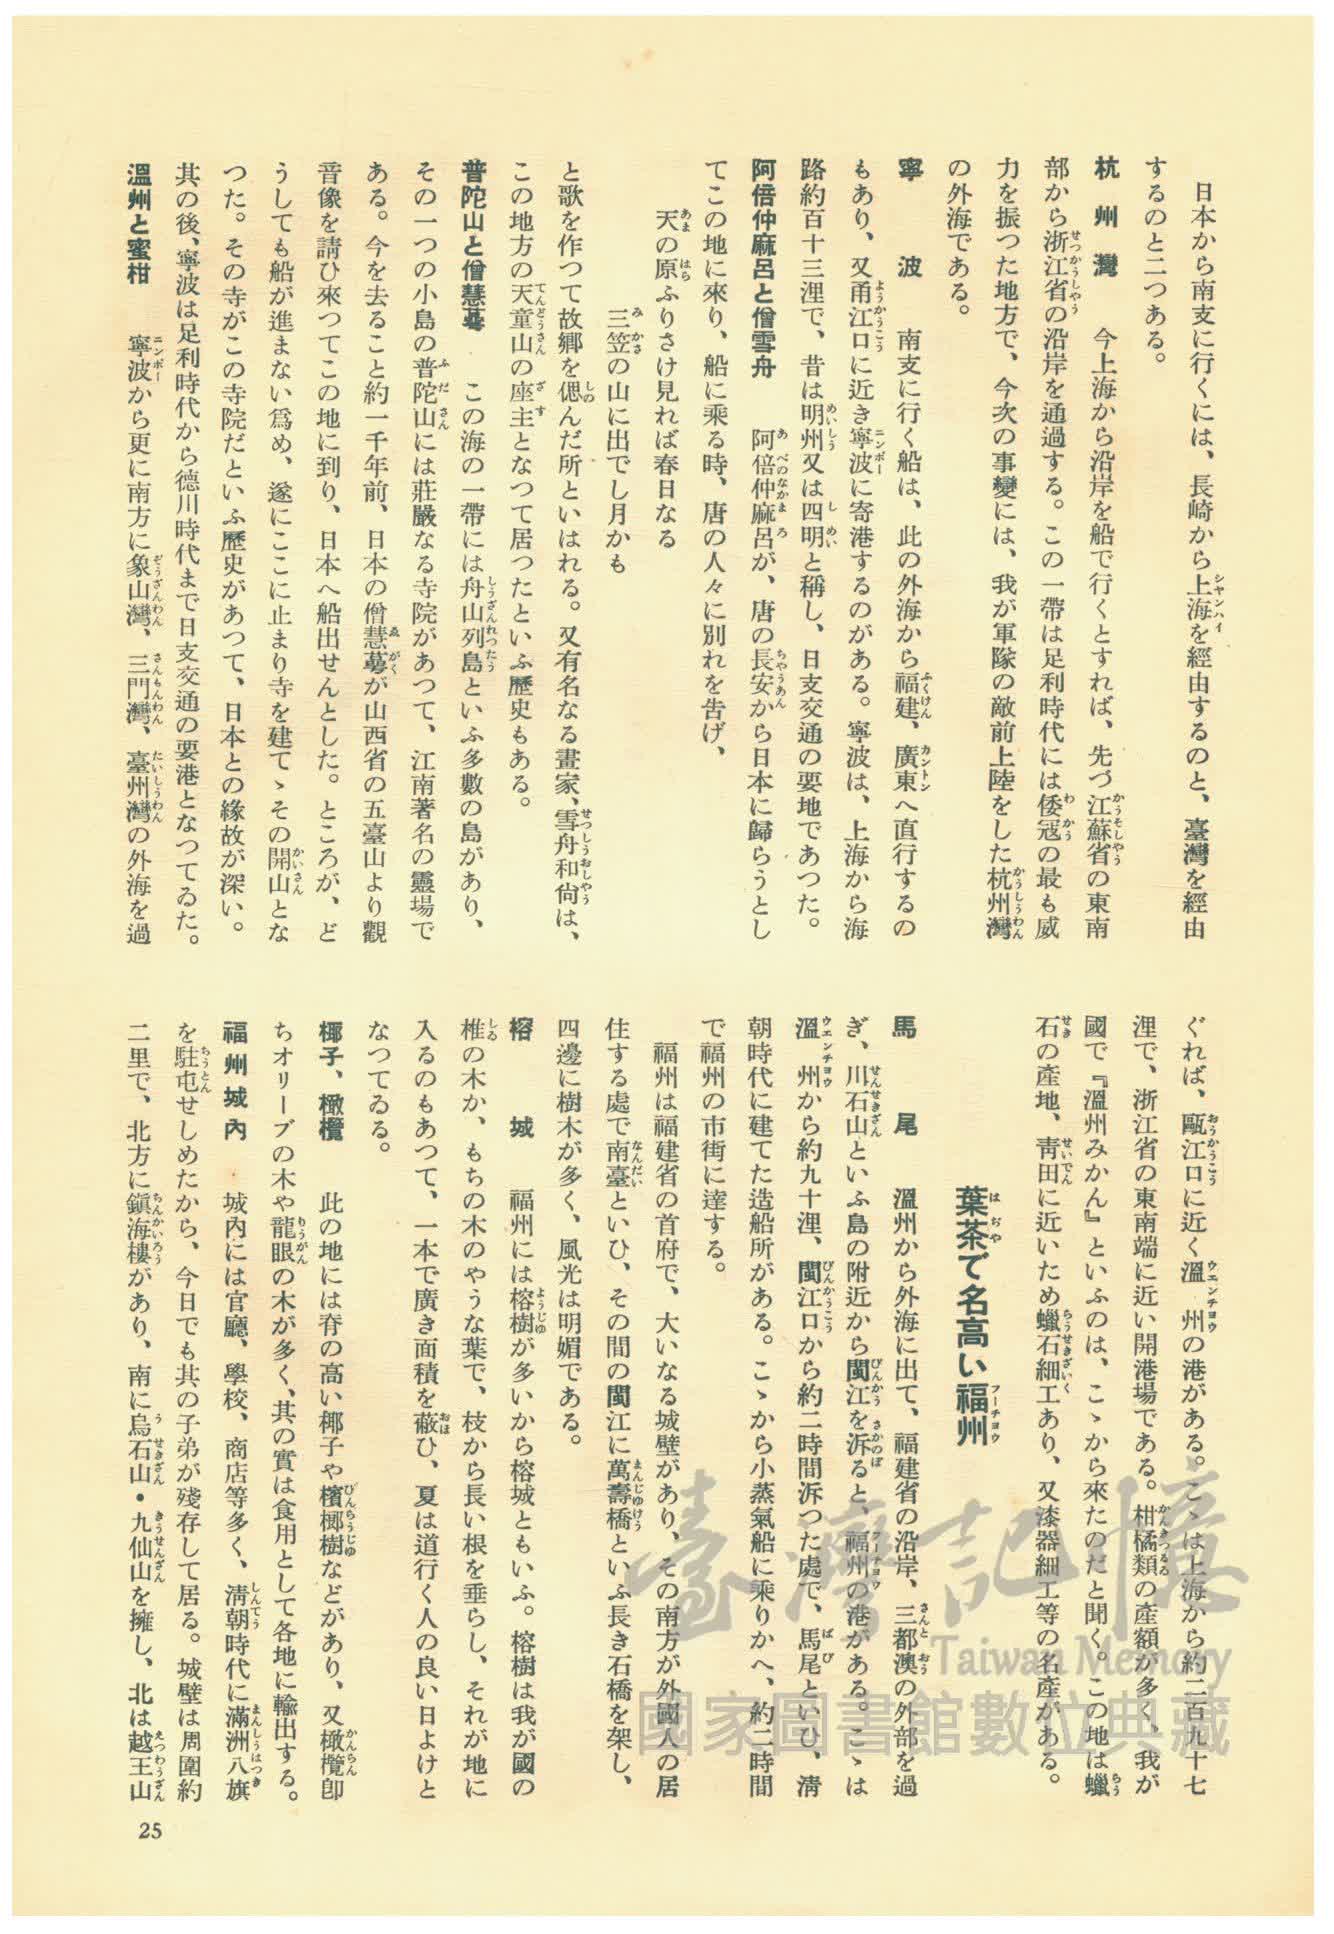 日本から南支に行くには、長崎から上海を經由するのと、臺灣を經由
するのと二つある。
杭州灣　今上海から沿岸を船で行くとすれば、先づ江蘇省の東南
部から浙江省の沿岸を通過する。この一帶は足利時代には倭寇の最も威
力を振つた地方で、今次の事變には、我が軍隊の敵前上陸をした杭州灣
の外海である。
寧波　南支に行く船は、此の外海から福建、廣東へ直行するの
もあり、又甬江口に近き寧波に寄港するのがある。寧波は、上海から海
路約百十三浬で、昔は明州又は四明と稱し、日支交通の要地であつた。
阿倍仲麻呂と僧雪舟　阿倍仲麻呂が、唐の長安から日本に歸らうとし
てこの地に來り、船に乘る時、唐の人々に別れを告げ、
天の原ふりさけ見れば春日なる
三笠の山に出でし月かも
と歌を作つて故鄕を偲んだ所といはれる。又有名なる畫家、雪舟和尙は、
この地方の天童山の座主となつて居つたといふ歷史もある。
普陀山と僧慧蕚　この海の一帶には舟山列島といふ多數の島があり、
その一つの小島の普陀山には莊嚴なる寺院があつて、江南著名の靈場で
ある。今を去ること約一千年前、日本の僧慧蕚が山西省の五臺山より觀
音像を請ひ來つてこの地に到り、日本へ船出せんとした。ところが、ど
うしても船が進まない爲め、遂にここに止まり寺を建てゝその開山とな
つた。その寺がこの寺院だといふ歷史があつて、日本との緣故が深い。
其の後、寧波は足利時代から德川時代まで日支交通の要港となつてゐた。
溫州と蜜柑　寧波から更に南方に象山灣、三門灣、臺州灣の外海を過
ぐれば、甌江口に近く溫州の港がある。こゝは上海から約二百九十七
浬で、浙江省の東南端に近い開港場である。柑橘類の產額が多く、我が
國で『溫州みかん』といふのは、こゝから來たのだと聞く。この地は蠟
石の產地、靑田に近いため蠟石細工あり、又漆器細工等の名產がある。
葉茶で名高い福州
馬尾　溫州から外海に出て、福建省の沿岸、三都澳の外部を過
ぎ、川石山といふ島の附近から閩江を泝ると、福州の港がある。こゝは
溫州から約九十浬、閩江口から約二時間泝つた處で、馬尾といひ、淸
朝時代に建てた造船所がある。こゝから小蒸氣船に乘りかへ、約二時間
で福州の市街に達する。
福州は福建省の首府で、大いなる城壁があり、その南方が外國人の居
住する處で南臺といひ、その間の閩江に萬壽橋といふ長き石橋を架し、
四邊に樹木が多く、風光は明媚である。
榕城　福州には榕樹が多いから榕城ともいふ。榕樹は我が國の
椎の木か、もちの木のやうな葉で、枝から長い根を垂らし、それが地に
入るのもあつて、一本で廣き面積を蔽ひ、夏は道行く人の良い日よけと
なつてゐる。
椰子、橄欖　此の地には脊の高い椰子や檳榔樹などがあり、又橄欖卽
ちオリーブの木や龍眼の木が多く、其の實は食用として各地に輸出する。
福州城內　城內には官廳、學校、商店等多く、淸朝時代に滿洲八旗
を駐屯せしめたから、今日でも其の子弟が殘存して居る。城壁は周圍約
二里で、北方に鎭海樓があり、南に烏石山・九仙山を擁し、北は越王山
25
臺灣記憶
Taiwan Memory
國家圖書館數位典藏